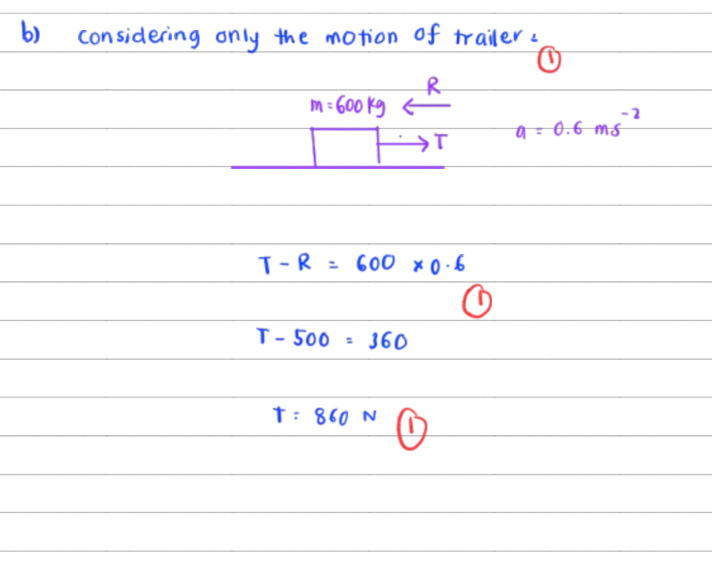 b) considering only the motion of trailer :
①
R
m = 600 kg
a = 0.6 ms⁻²
T
T - R = 600 × 0.6
①
T - 500 = 360
T = 860 N ①